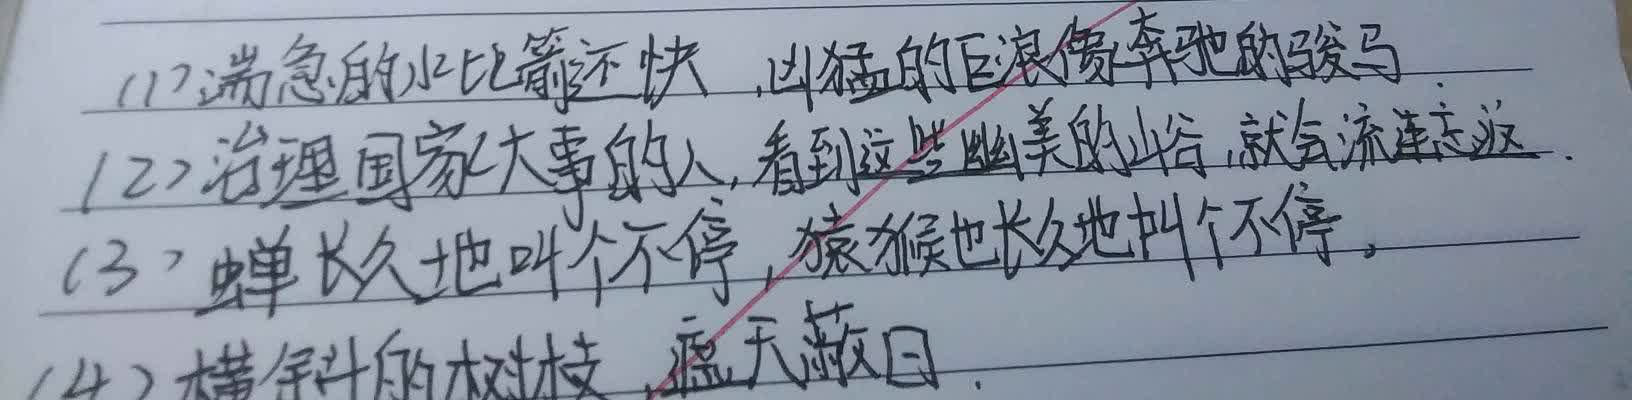 (1)湍急的水比箭还快,凶猛的巨浪像奔驰的骏马.
(2)治理国家大事的人,看到这些幽美的山谷,就会流连忘返.
(3)蝉长久地叫个不停,猿猴也长久地叫个不停。
(4)横斜的树枝,遮天蔽日.